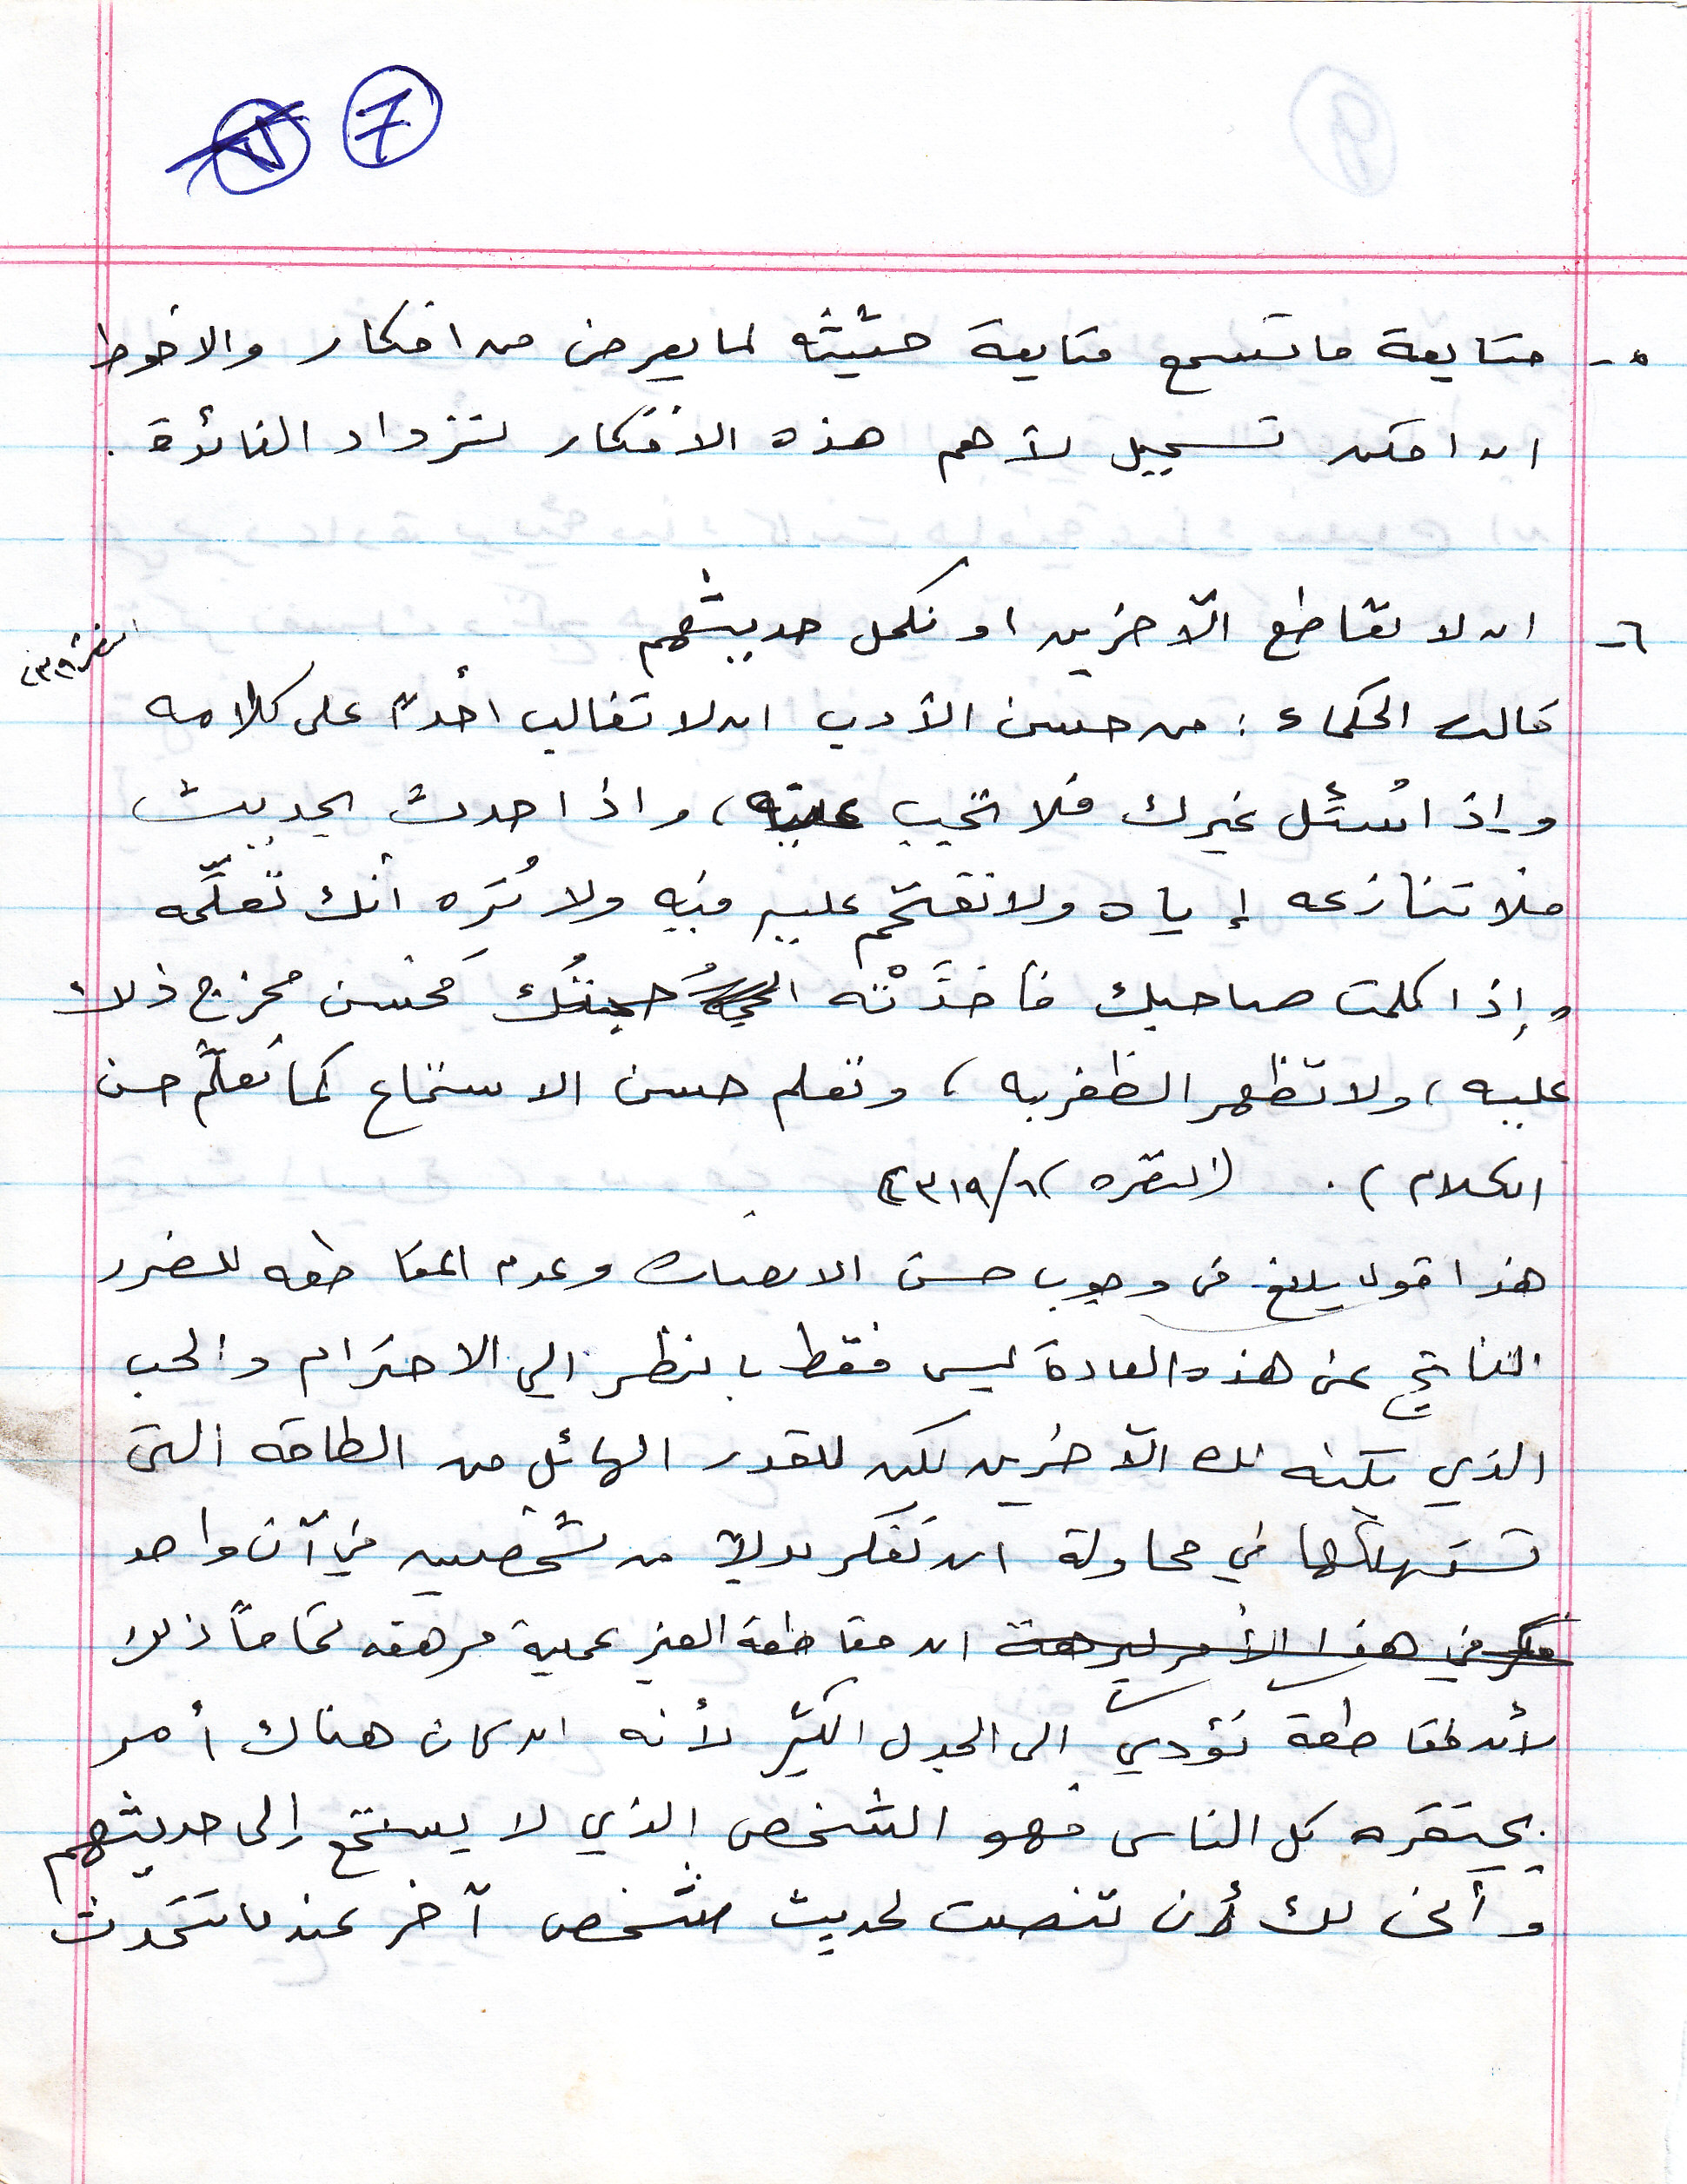 7
٥- متابعة ما تسمع متابعة حثيثه لما يعرض من افكار والاحوط
ان امكن تسجيل لأهم هذه الافكار لتزداد الفائدة .
٦- ان لا تقاطع الآخرين او تكمل حديثهم
قالت الحكماء : من حسن الأدب ان لا تغالب احدًا على كلامه
وإذا سُئل غيرك فلا تجيب عنه ، واذا حدث بحديث
فلا تنازعه إياه ولا تقتحم عليه فيه ولا تُرِه أنك تعلّمه
وإذا كلمت صاحبك فأخذَتْه حجتُك فحسن مخرج ذلك
عليه ، ولا تظهر الظفر به ، وتعلم حسن الاستماع كما تعلّم حسن
الكلام ) .
هذا قول بليغ في وجوب حسن الانصات وعدم المقاطعه للضرر
الناتج عن هذه العادة ليس فقط بالنظر الي الاحترام والحب
الذي يكنه لك الآخرين لكن للقدر الهائل من الطاقه التى
تستهلكها في محاولة ان تفكر بدلاً من شخصين في آن واحد
فكر في هذا الأمر لبرهة ان مقاطعة الغير عملية مرهقه تمامًا ذلك
لأن مقاطعة تؤدي إلى الجدل الكثير لأنه ان كان هناك أمر
يحتقره كل الناس فهو الشخص الذي لا يستمع إلى حديثهم
وأنى لك أن تنصت لحديث شخص آخر عندما تتحدث